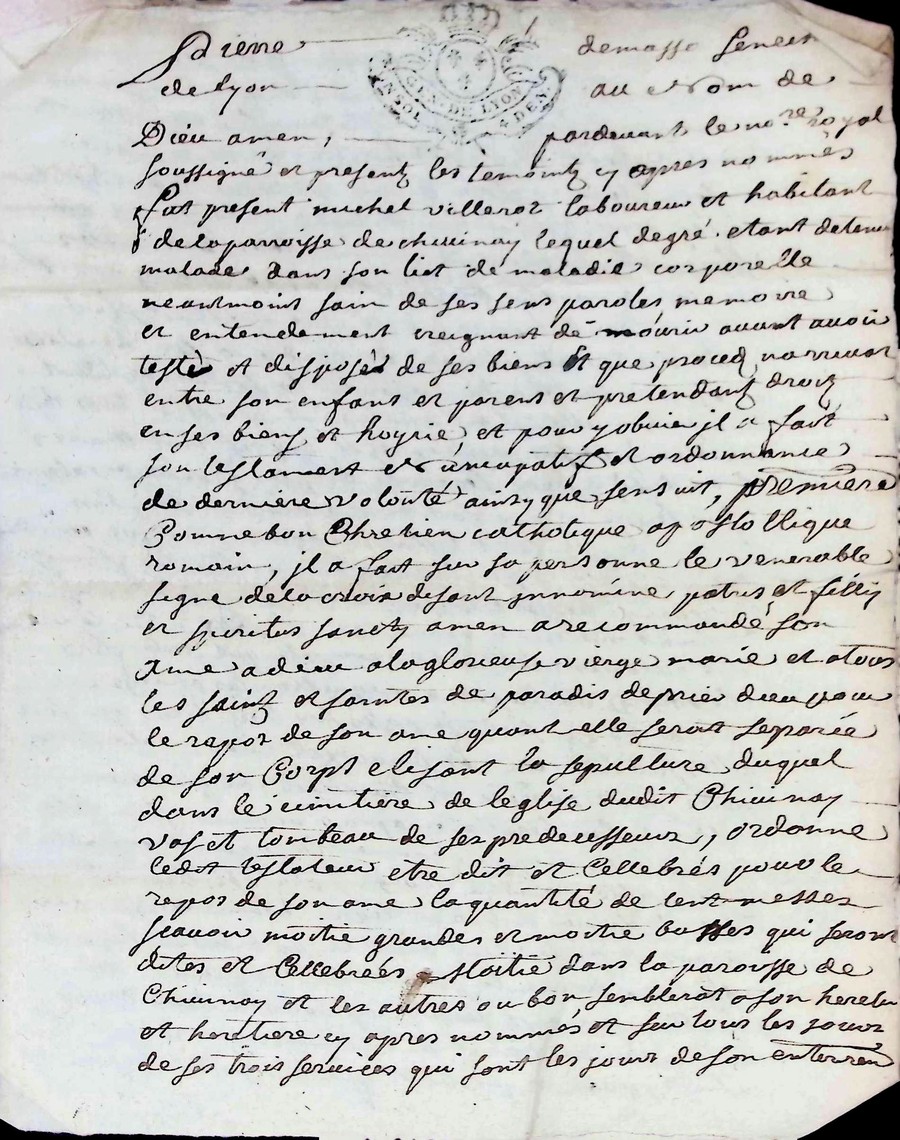 Pierre demasso Senech
de lyon au Nom de
GEN. DE LYON
Dieu amen, pardevant le no.re Royal
soussigné et presentz les temointz cy apres nommés
fut present michel villerot laboureur et habitant
de la parroisse de chivinay lequel de gré etant detenu
malade dans son lict de maladie corporelle
neantmoint sain de ses sens paroles memoire
et entendement creignant de mourir avant avoir
testé et disposé de ses biens et que proceds n'arrivat
entre son enfans et parens et pretendanz droitz
en ses biens et hoyrie, et pour y obvier jl a fait
son testament Nuncupatif et ordonnance
de derniere volonté ainsy que sensuit, premiere
Comme bon Chretien catholique apostollique
romain, jl a fait sur sa personne le venerable
signe de la croix disant jnnomine patris et fillij
et spiritus sancty amen a recommandé son
ame a dieu a la glorieuse vierge marie et a tous
les saintz et saintes de paradis de prier dieu pour
le repos de son ame quant elle serat separée
de son Corps elisant la sepulture duquel
dans le cimitière de leglise dudit Chivinay
vas et tombeau de ses predecesseurs, ordonne
ledit testateur etre dit et Cellebrés pour le
repos de son ame la quantité de cent messes
scavoir moitie grandes et moitie basses qui seront
dites et Cellebreés moitie dans la paroisse de
Chivinay et les autres ou bon semblerat a son heretier
et heretiere cy apres nommés et sur tous les jours
de ses trois services qui sont les jours de son enterrem